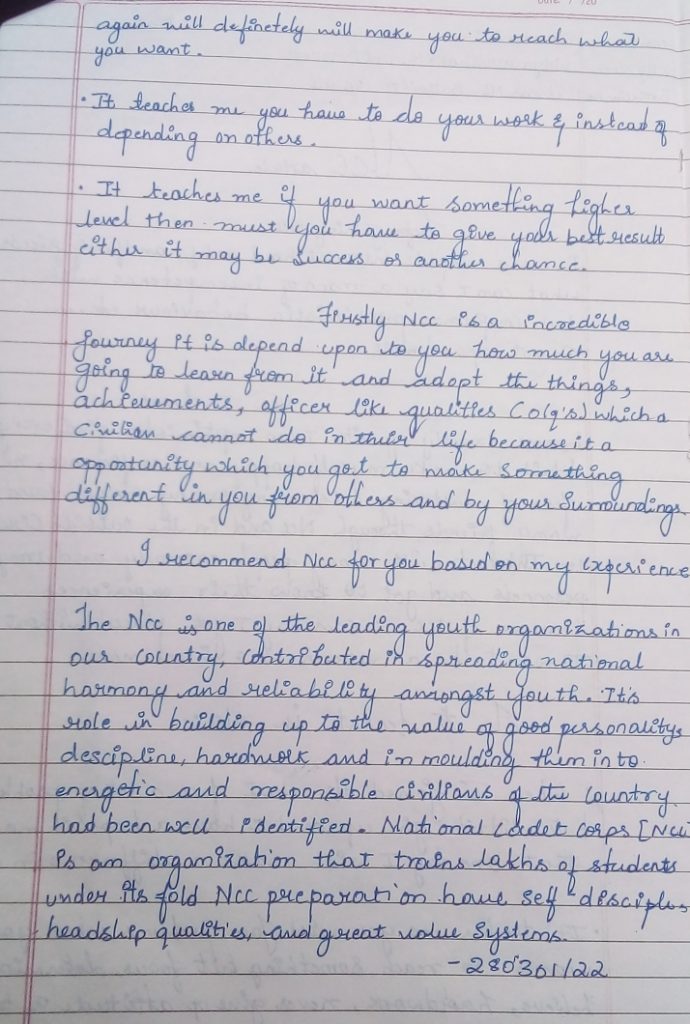 again will definetely will make you to reach what
you want.
• It teaches me you have to do your work & instead of
depending on others.
• It teaches me if you want something higher
level then must you have to give your best result
either it may be success or another chance.
Firstly Ncc is a incredible
journey it is depend upon to you how much you are
going to learn from it and adopt the things,
achievements, officer like qualities (olq's) which a
civilian cannot do in their life because it a
opportunity which you got to make something
different in you from others and by your surroundings.
I recommend Ncc for you based on my experience
The Ncc is one of the leading youth organizations in
our country, contributed in spreading national
harmony and reliability amongst youth. It's
role in building up to the value of good personality,
descipline, hardwork and in moulding them into
energetic and responsible civilians of the country
had been well identified. National Cadet Corps [Ncc]
is an organization that trains lakhs of students
under its fold Ncc preparation have self-
headship qualities, and great value systems.
- 280301/22